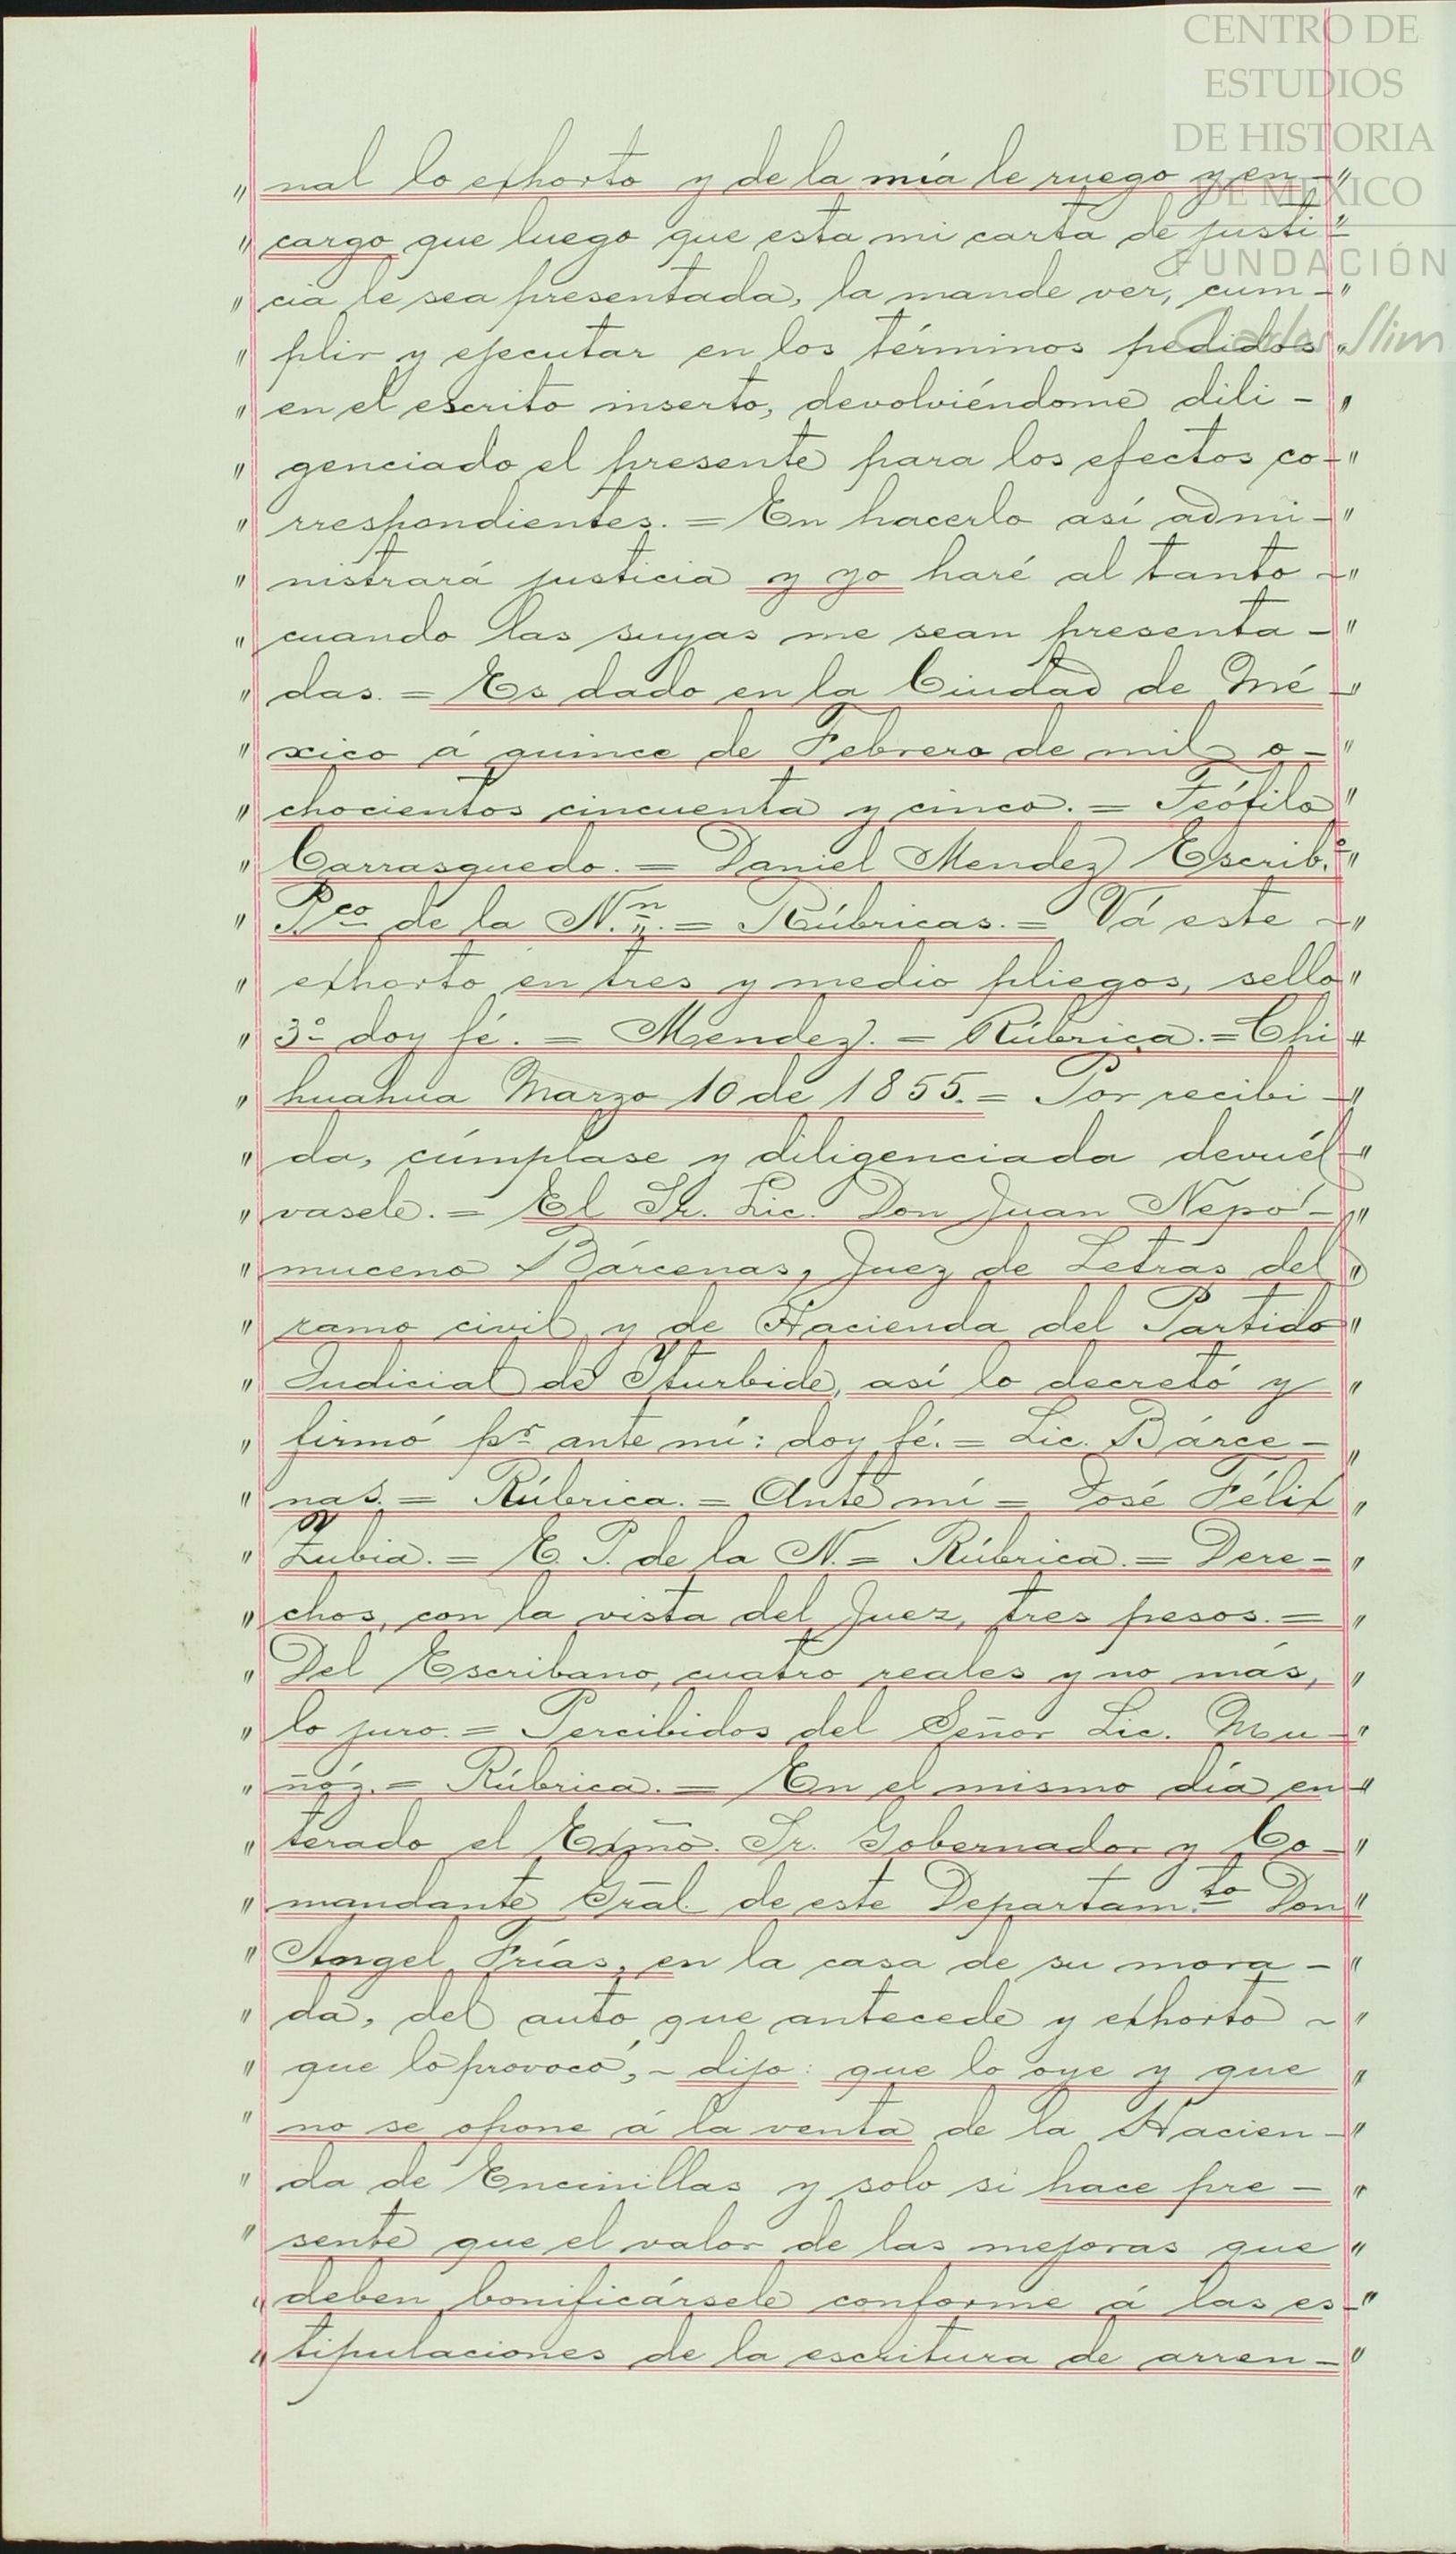 CENTRO DE
ESTUDIOS
DE HISTORIA
DE MÉXICO
FUNDACIÓN
Carlos Slim
" nal lo exhorto y de la mía le ruego y en- "
" cargo que luego que esta mi carta de justi- "
" cia le sea presentada, la mande ver, cum- "
" plir y ejecutar en los términos pedidos "
" en el escrito inserto, devolviéndome dili- "
" genciado el presente para los efectos co- "
" rrespondientes. = En hacerlo así admi- "
" nistrará justicia y yo haré al tanto - "
" cuando las suyas me sean presenta- "
" das. = Es dado en la Ciudad de Mé- "
" xico á quince de Febrero de mil o- "
" chocientos cincuenta y cinco. = Teófilo "
" Carrasquedo. = Daniel Mendez Escrib.º "
" P.co de la N.n = Rúbricas. = Vá este - "
" exhorto en tres y medio pliegos, sello "
" 3º doy fé. = Mendez. = Rúbrica. = Chi- "
" huahua Marzo 10 de 1855. = Por recibi- "
" da, cúmplase y diligenciada devuél- "
" vasele. = El Sr. Lic. Don Juan Nepo- "
" muceno Bárcenas, Juez de Letras del "
" ramo civil y de Hacienda del Partido "
" Judicial de Yturbide, así lo decretó y "
" firmó pr ante mí: doy fé. = Lic. Bárce- "
" nas. = Rúbrica. = Ante mí = José Félix "
" Zubia. = E. P. de la N. = Rúbrica. = Dere- "
" chos, con la vista del Juez, tres pesos. = "
" Del Escribano, cuatro reales y no más, "
" lo juro. = Percibidos del Señor Lic. Mu- "
" ñóz. = Rúbrica. = En el mismo día en- "
" terado el Exmo. Sr. Gobernador y Co- "
" mandante Gral. de este Departam.to Don "
" Angel Frías, en la casa de su mora- "
" da, del auto que antecede y exhorto - "
" que lo provocó, - dijo: que lo oye y que "
" no se opone á la venta de la Hacien- "
" da de Encinillas y solo si hace pre- "
" sente que el valor de las mejoras que "
" deben bonificársele conforme á las es- "
" tipulaciones de la escritura de arren- "